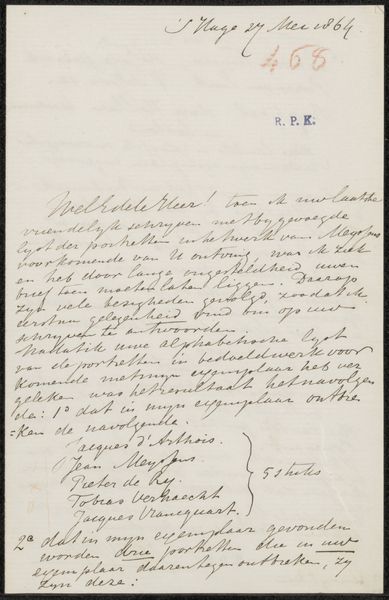 's Hage 27 Mei 1864
468
R. P. K.
WelEdele Heer! toen ik uw laatste
vriendelijk schrijven met bijgevoegde
lijst der portretten in het werk van Meyssens
voorkomende van U ontving, was ik ziek
en heb door lange ongesteldheid, uwen
brief toen moeten laten liggen. Daarop
zijn vele bezigheden gevolgd, zoodat ik
eerst nu gelegenheid vind om op uw
schrijven te antwoorden.
Nadat ik uwe alphabetische lijst
van de portretten in bedoeld werk voor
komende met mijn exemplaar heb ver
geleken was het resultaat het navolgen
de: 1o dat in mijn exemplaar ontbre
=ken de navolgende.
Jacques d'Arthois.
Jean Meyssens
Pieter de
Tobias Verhaecht
Jacques Francquart.
5 stuks
2o dat in mijn exemplaar gevonden
worden drie portretten die in uw
exemplaar daarentegen ontbreken, zij
zijn deze: